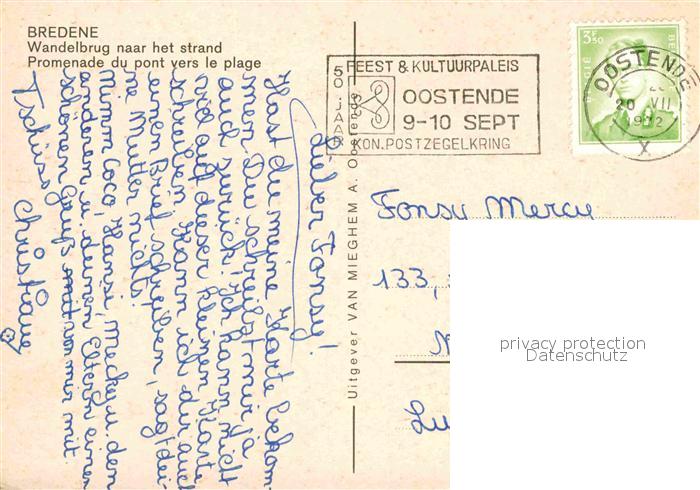 BREDENE
Wandelbrug naar het strand
Promenade du pont vers le plage
50 JAAR
FEEST & KULTUURPALEIS
OOSTENDE
9-10 SEPT
KON. POSTZEGELKRING
3F50
BELGIE
OOSTENDE
20 VII
1972
X
Uitgever VAN MIEGHEM A. Oostende
Lieber Fonsy!
Hast du meine Karte bekom-
men. Du schreibst mir ja
auch zurück! Ich kann nicht
viel auf dieser kleinen Karte
schreiben. Kann ich dir auch
einen Brief schreiben, sagt dei-
ne Mutter nichts!
Mimm Coco, Hansi, Mecky u. dem
anderen u. deinen Eltern einen
schönen Gruß mit von mir mit
Tschüss
Christiane
Fonsy Mercy
133,
Lu
privacy protection
Datenschutz